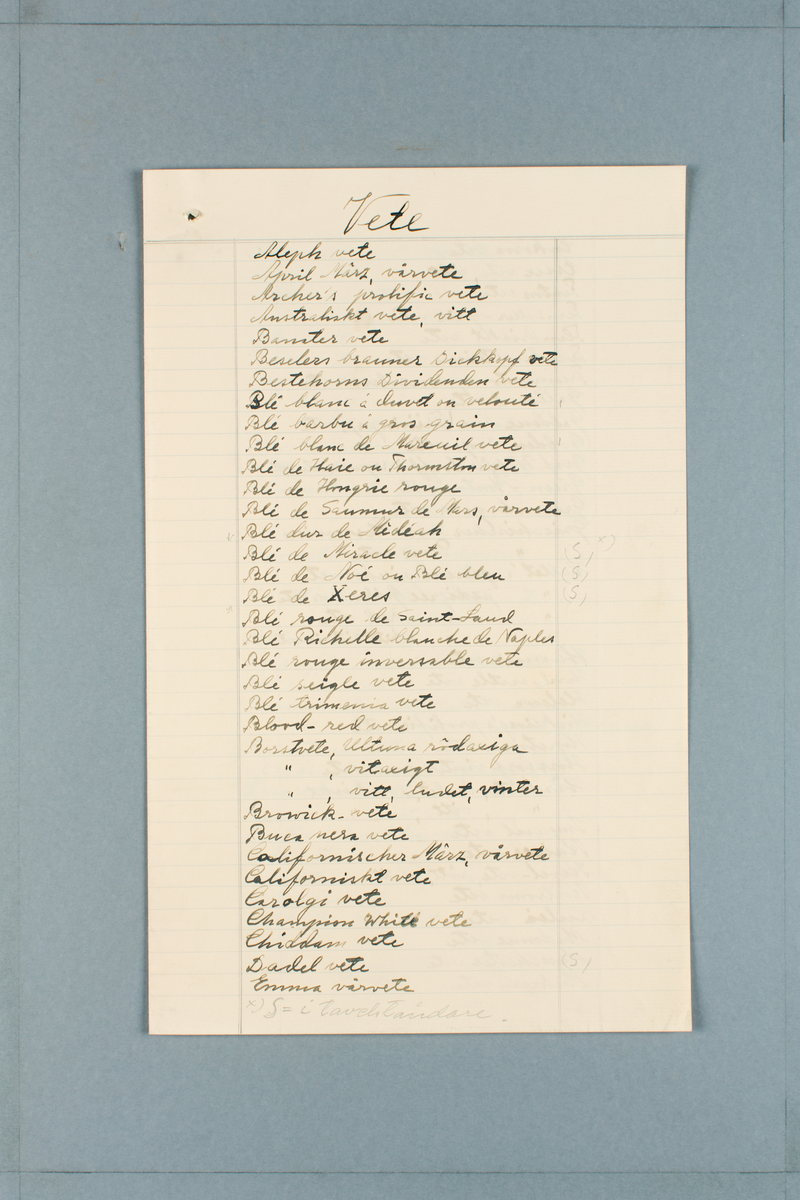 Vete
Aleph vete
April März, vårvete
Archer's prolific vete
Australiskt vete, vitt
Banster vete
Beselers brauner Dickkopf vete
Bestehorns Dividenden vete
Blé blanc á duvet ou velouté
Blé barbu á gros grain
Blé blanc de Mareuil vete
Blé de Haie ou Thormston vete
Blé de Hongrie rouge
Blé de Saumur de Mars, vårvete
Blé dur de Médéah
Blé de Miracle vete (S) x)
Blé de Noé ou Blé bleu (S)
Blé de Xeres (S)
Blé rouge de Saint-Laud
Blé Richelle blanche de Naples
Blé rouge inversable vete
Blé seigle vete
Blé trimenia vete
Blood-red vete
Borstvete, Ultuna rödaxiga
" , vitaxigt
" , vitt, ludet, vinter
Browick-vete
Buca nera vete
Californischer März, vårvete
Californiskt vete
Carolgi vete
Champion White vete
Chiddam vete
Dadel vete (S)
Emma vårvete
x) S = i tavelståndare.